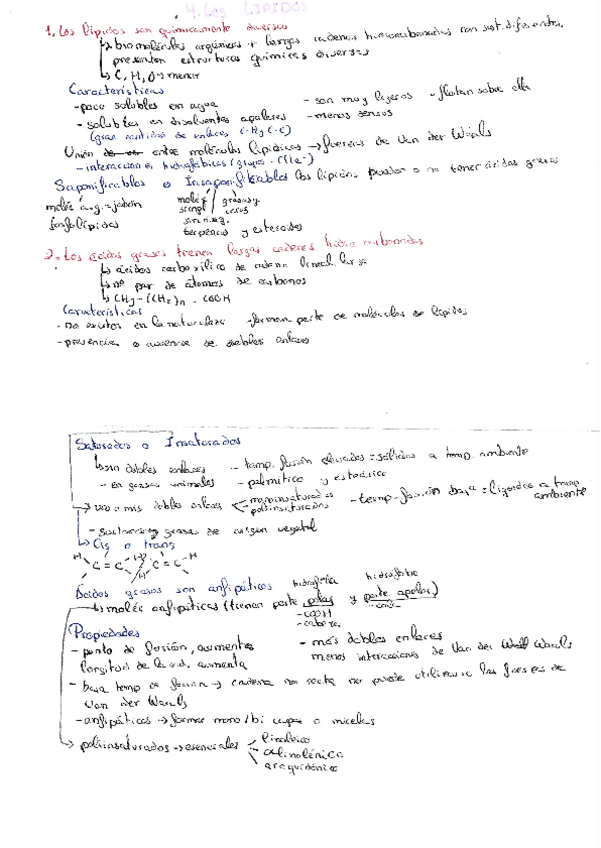 4. Los LIPIDOS
1. Los lípidos son químicamente diversos
↳ biomoléculas orgánicas + largas cadenas hidrocarbonadas con sust. diferentes,
presentan estructuras químicas diversas
↳ C, H, O → menor
Características
- poco solubles en agua - son muy ligeros - flotan sobre ella
- solubles en disolventes apolares - menos densos
(gran cantidad de enlaces C-H y C-C)
Unión entre moléculas lipídicas → fuerzas de Van der Waals
- interacciones hidrofóbicas (grupos -CH2-)
Saponificables o Insaponificables los lípidos pueden o no tener ácidos grasos
moléc a.g. = jabón grasas y
fosfolípidos ceras
sin a.g.
terpenos y esteroides
2. Los ácidos grasos tienen largas cadenas hidrocarbonadas
↳ ácidos carboxílico de cadena lineal larga
↳ nº par de átomos de carbonos
↳ CH3 - (CH2)n - COOH
Características
- no exentos en la naturaleza - forman parte de moléculas de lípidos
- presencia o ausencia de dobles enlaces
Saturados o Insaturados
↳ sin dobles enlaces - temp. fusión elevadas = sólidos a temp. ambiente
- en grasas animales - palmítico y esteárico
→ uno o más dobles enlaces < monoinsaturados - temp. fusión baja = líquidos a temp
poliinsaturados ambiente
- grasas de origen vegetal
↳ Cis o trans
H H H
C = C C = C
H
Ácidos grasos son anfipáticos hidrofílica hidrófobe
↳ moléc anfipáticas (tienen parte polar y parte apolar)
-COOH
- cabeza
Propiedades
- punto de fusión, aumenta - más dobles enlaces
longitud de la cad. aumenta menos interacciones de Van der Waals
- baja temp de fusión → cadena no recta no puede utilizarse las fuerzas de
Van der Waals
- anfipáticos → formar mono/bi capas o micelas
↳ poliinsaturados → esenciales < linoleico
α linolénico
araquidónico